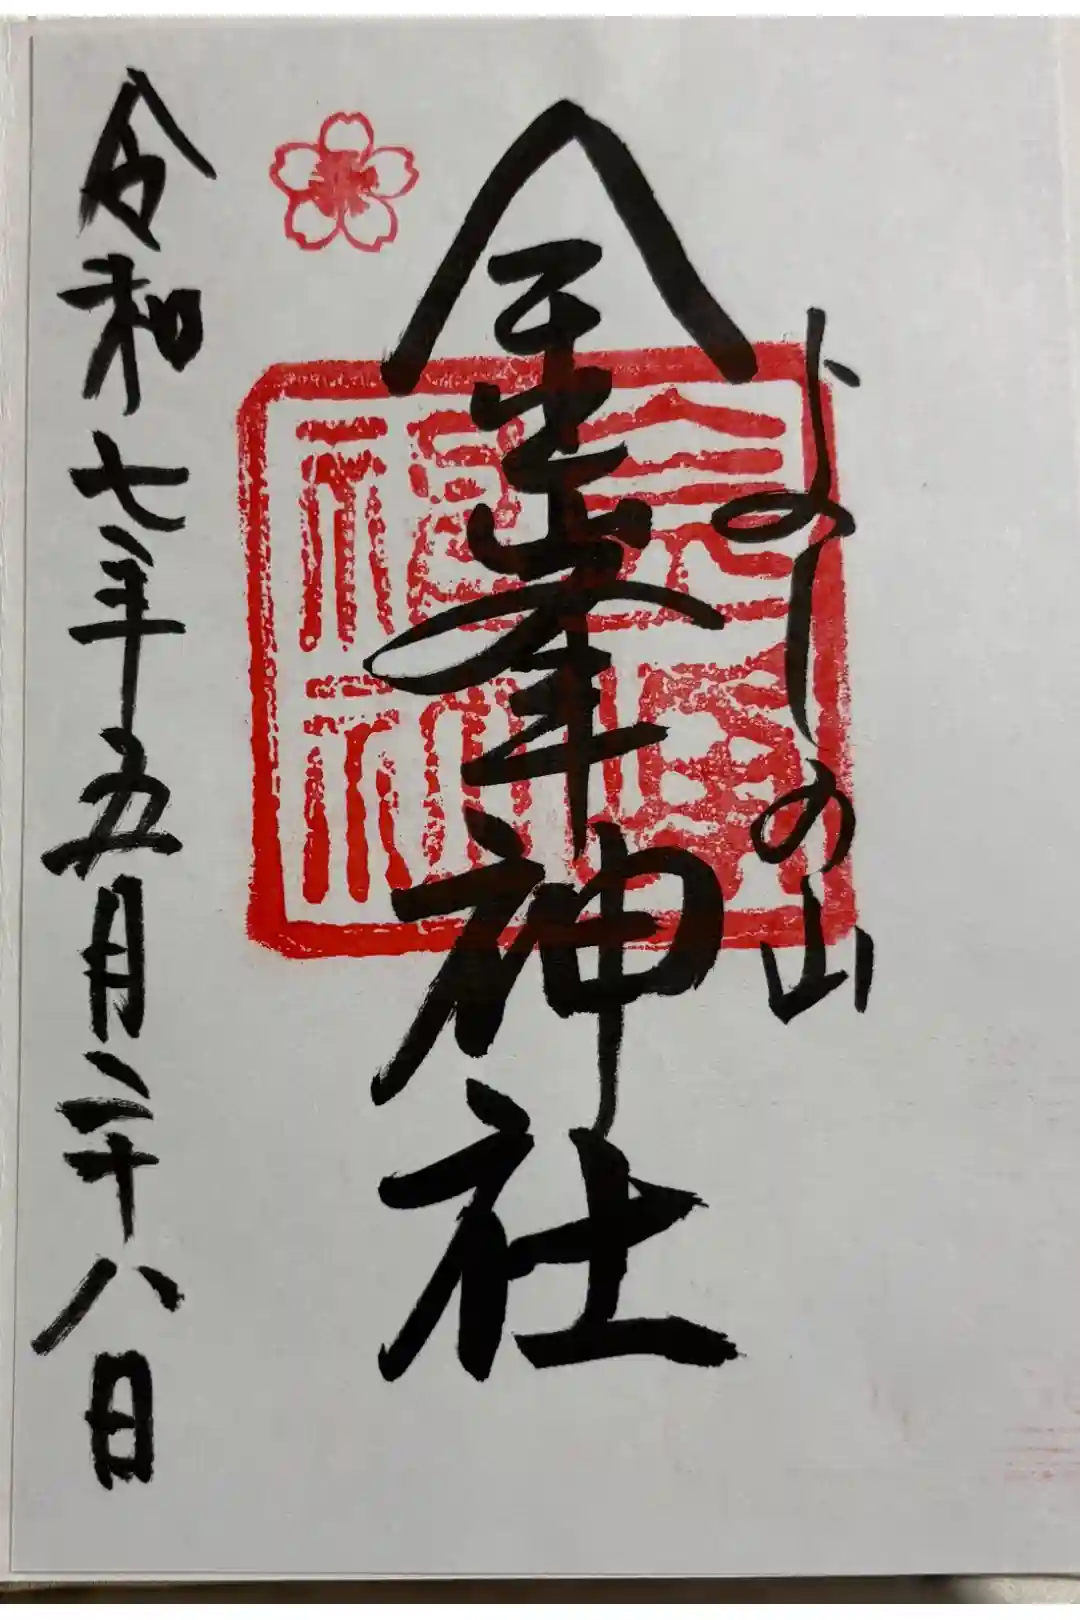 よしの山
金峯神社
令和七年五月二十八日